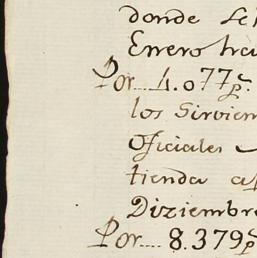 donde se
Enero
Por.... 4.077p.
los Sirvien
Oficiales
tienda a
Diziembre
Por.... 8.379p